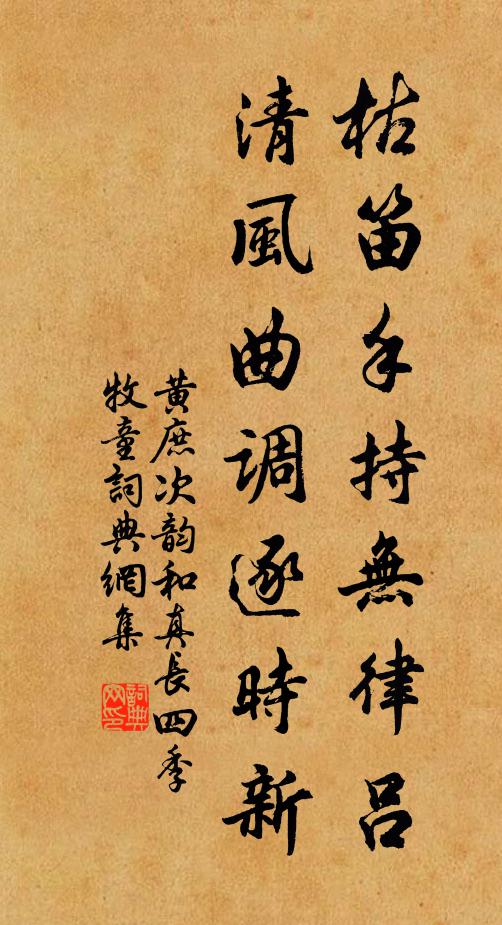 枯笛手持無律呂
清風曲调逐時新
黄庶次韵和真長四季
牧童詞典網集
詞典
网印